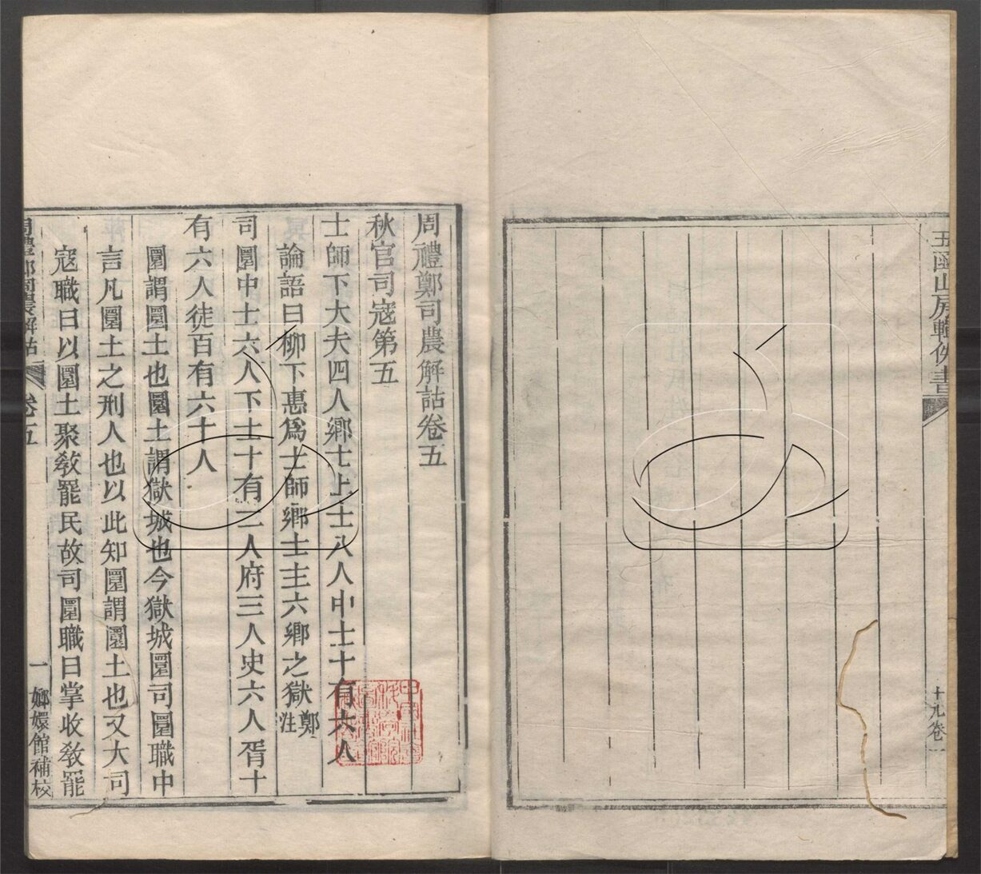 玉函山房輯佚書
十九卷一
周禮鄭司農解詁卷五
秋官司寇第五
士師下大夫四人鄉士上士八人中士十有六人
論語曰柳下惠爲士師鄉士主六鄉之獄鄭注
司圜中士六人下士十有二人府三人史六人胥十
有六人徒百有六十人
圜謂圜土也圜土謂獄城也今獄城圜司圜職中
言凡圜土之刑人也以此知圜謂圜土也又大司
寇職曰以圜土聚敎罷民故司圜職曰掌收敎罷
周禮鄭司農解詁 卷五
一 嫏嬛館補校